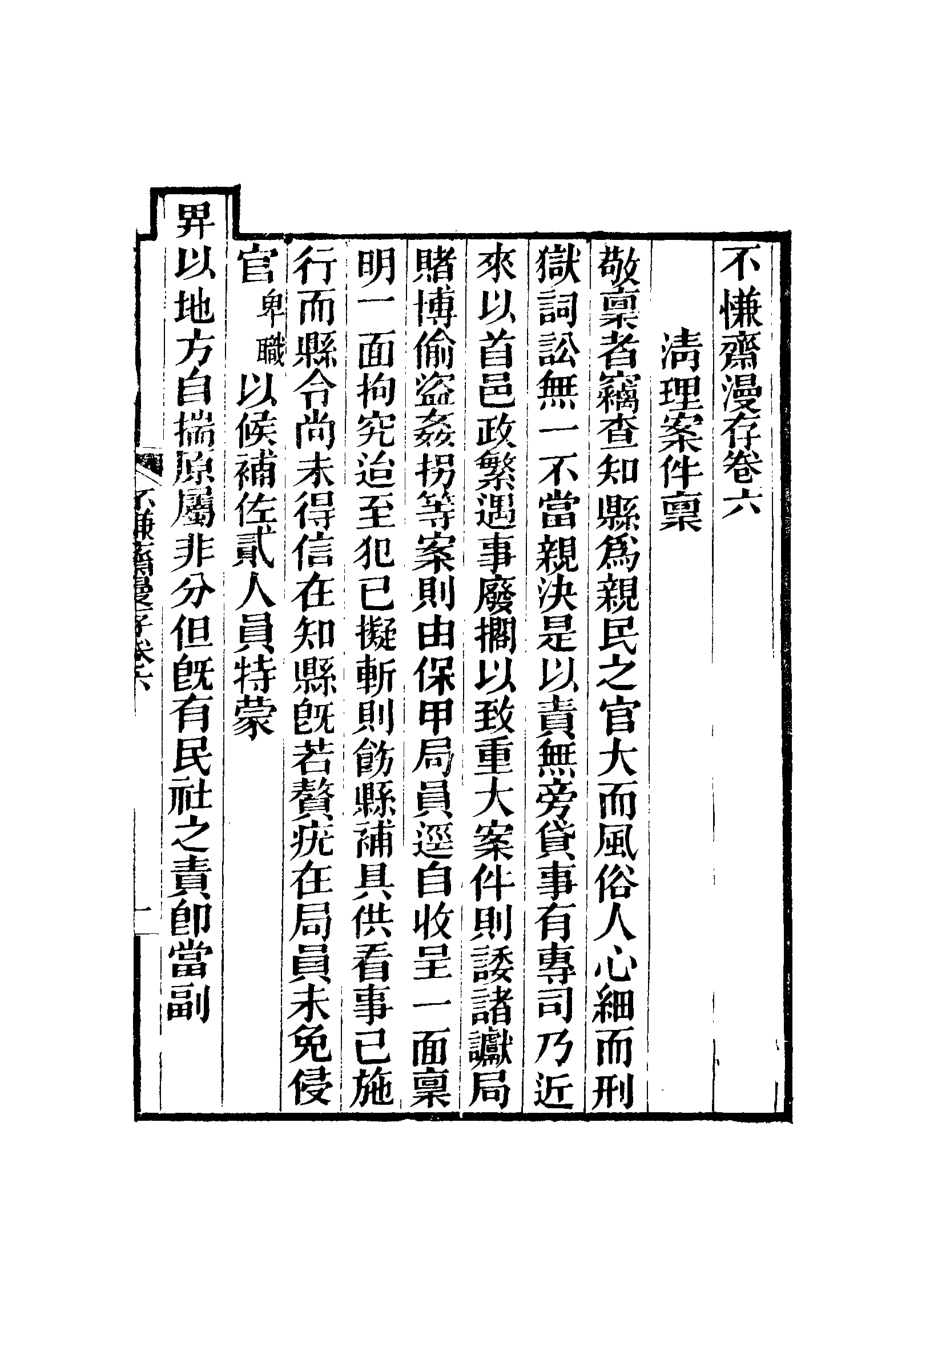 不慊齋漫存卷六
清理案件稟
敬稟者竊查知縣爲親民之官大而風俗人心細而刑
獄詞訟無一不當親決是以責無旁貸事有專司乃近
來以首邑政繁遇事廢擱以致重大案件則諉諸讞局
賭博偷盜姦拐等案則由保甲局員逕自收呈一面稟
明一面拘究迨至犯已擬斬則飭縣補具供看事已施
行而縣令尚未得信在知縣旣若贅疣在局員未免侵
官卑職以候補佐貳人員特蒙
畀以地方自揣原屬非分但旣有民社之責卽當副
不慊齋漫存卷六
一